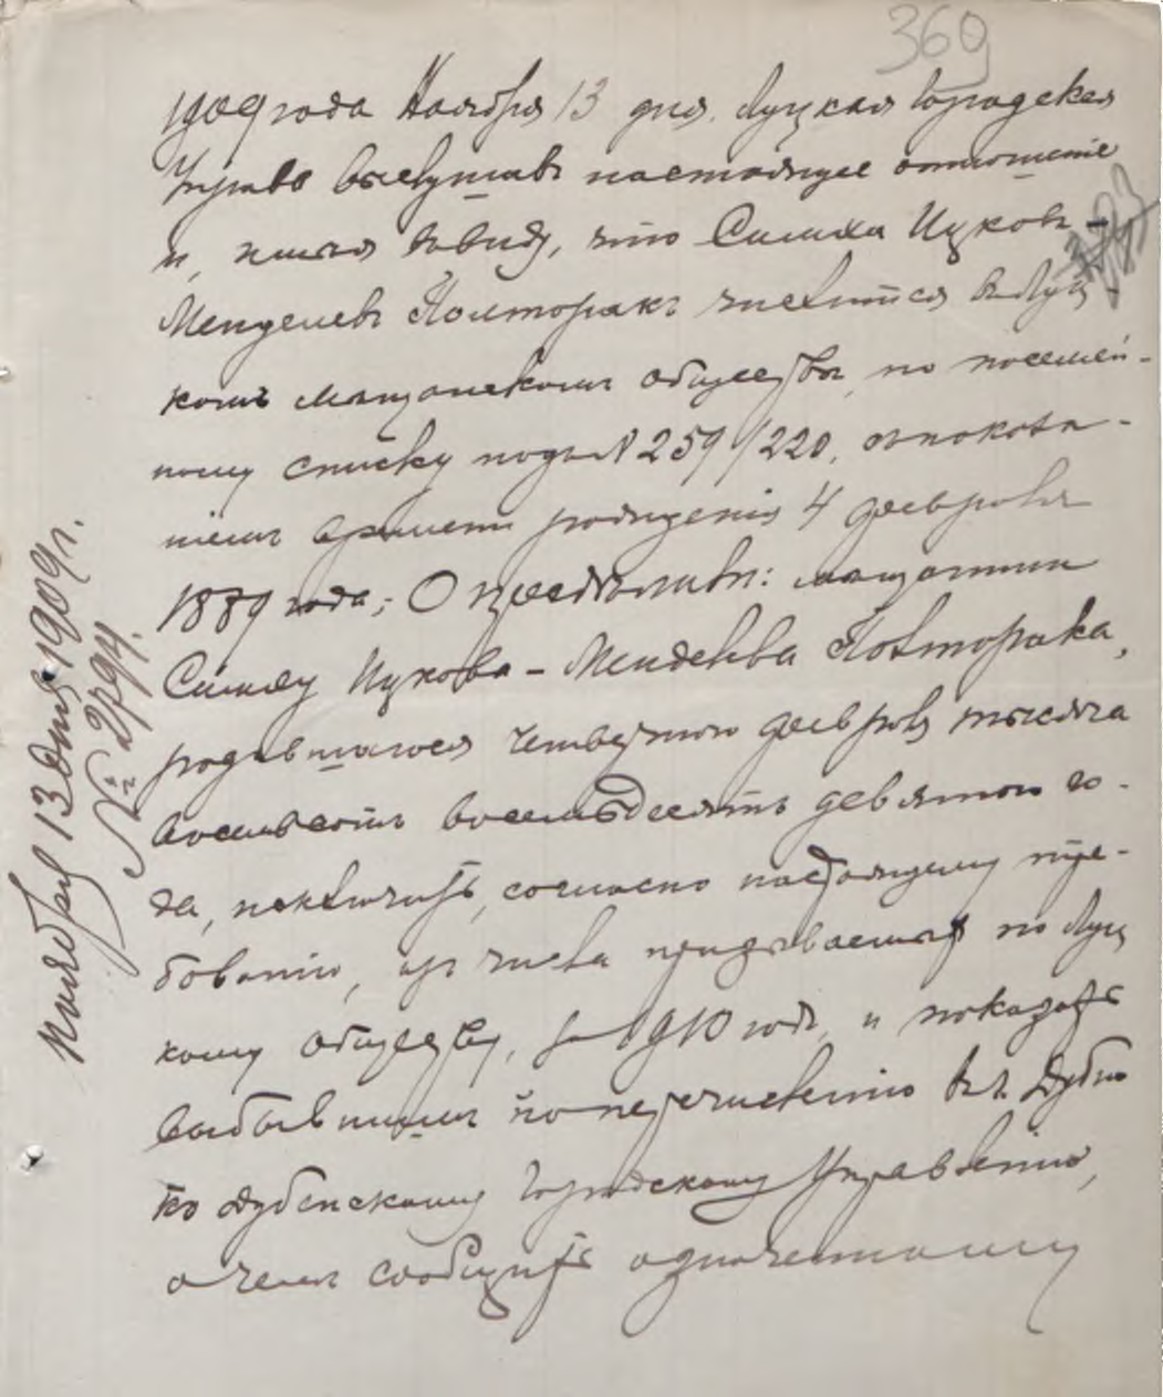 369
1909 года Ноября 13 дня. Луцкая Городская
Управа выслушавъ настоящее отношение
и, имея ввиду, что Симха Ицковъ-
Менделевъ Полторакъ числится в Луц-
комъ мещанскомъ обществе, по посемей-
ному списку подъ N 259/220, съ показа-
ниемъ времени рождения 4 февраля
1889 года; Определили: мещанина
Симху Ицкова - Менделева Полторака,
родившагося четвертаго февраля тысяча
восемьсотъ восемьдесятъ девятого го-
да, исключить, согласно настоящему тре-
бованию, из числа призываемыхъ по Луц
кому обществу, за 1910 годъ, и показать
выбывшимъ по перечислению въ г. Дубно
Ко Дубенскому Городскому Управлению,
о чемъ сообщить одночетному
Ноября 13 дня 1909 г.
№ 2794.